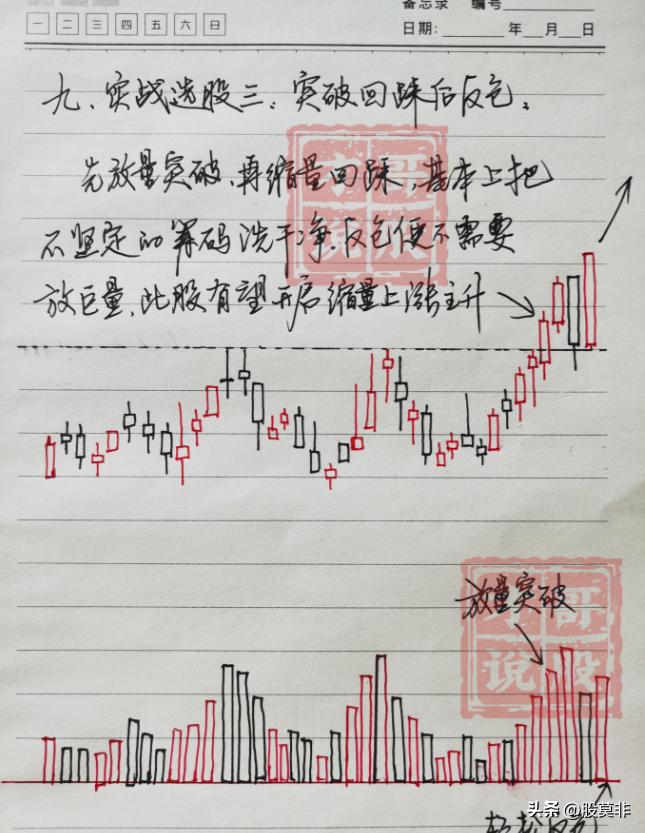 备忘录 编号
一 二 三 四 五 六 日
日期: 年 月 日
九、实战选股三:突破回踩后反包。
先放量突破,再缩量回踩,基本上把
不坚定的筹码洗干净,反包便不需要
放巨量,此股有望开启缩量上涨主升
哥
说股
放量突破
哥
说股
头条 @股莫非